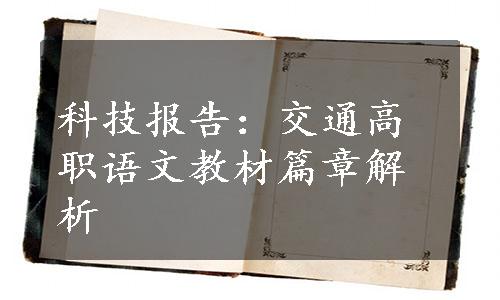 科技报告：交通高
职语文教材篇章解
析